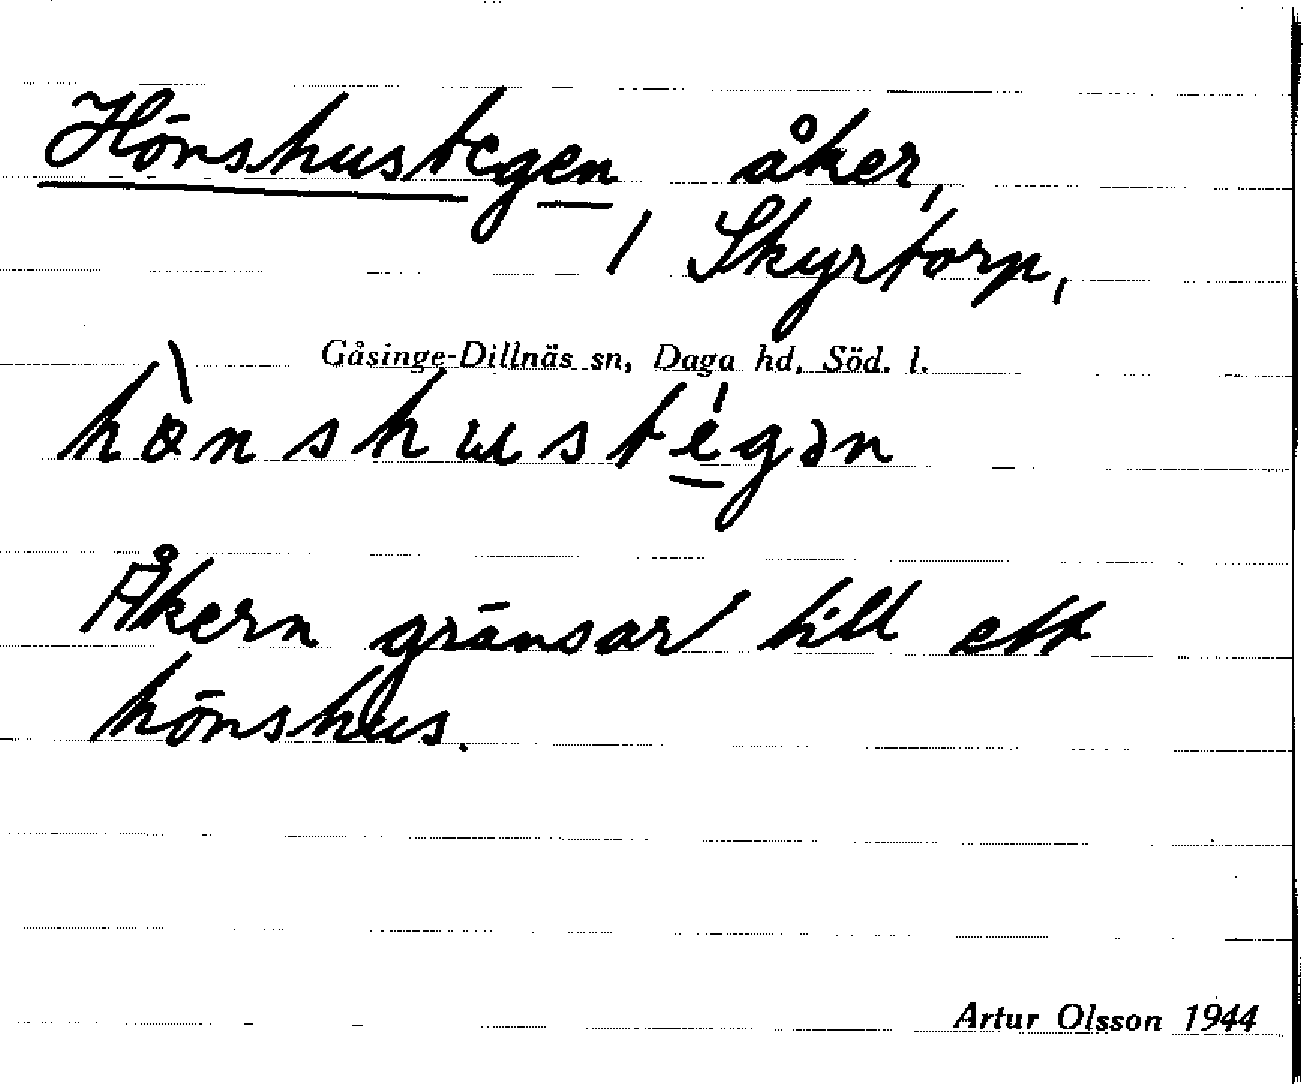 Hönshustegen, åker,
Skyrtorp,
Gåsinge-Dillnäs sn, Daga hd, Söd. l.
hø̀nshustégən
Åkern gränsar till ett
hönshus.
Artur Olsson 1944